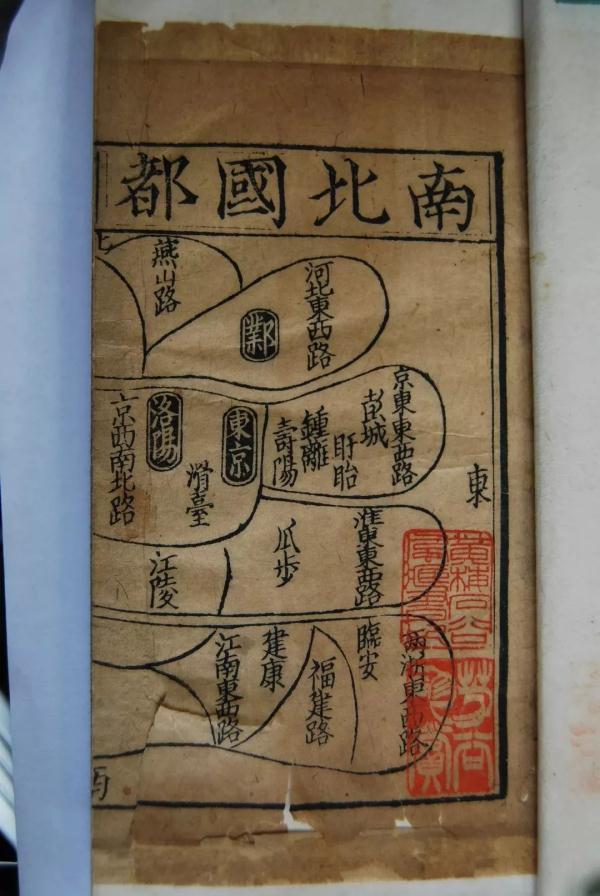 南北國都
東
河北東西路
鄴
燕山路
京東東西路
彭城
盱眙
鍾離
壽陽
東京
滑臺
洛陽
京西南北路
淮東東西路
瓜步
江陵
兩浙東西路
臨安
福建路
建康
江南東西路